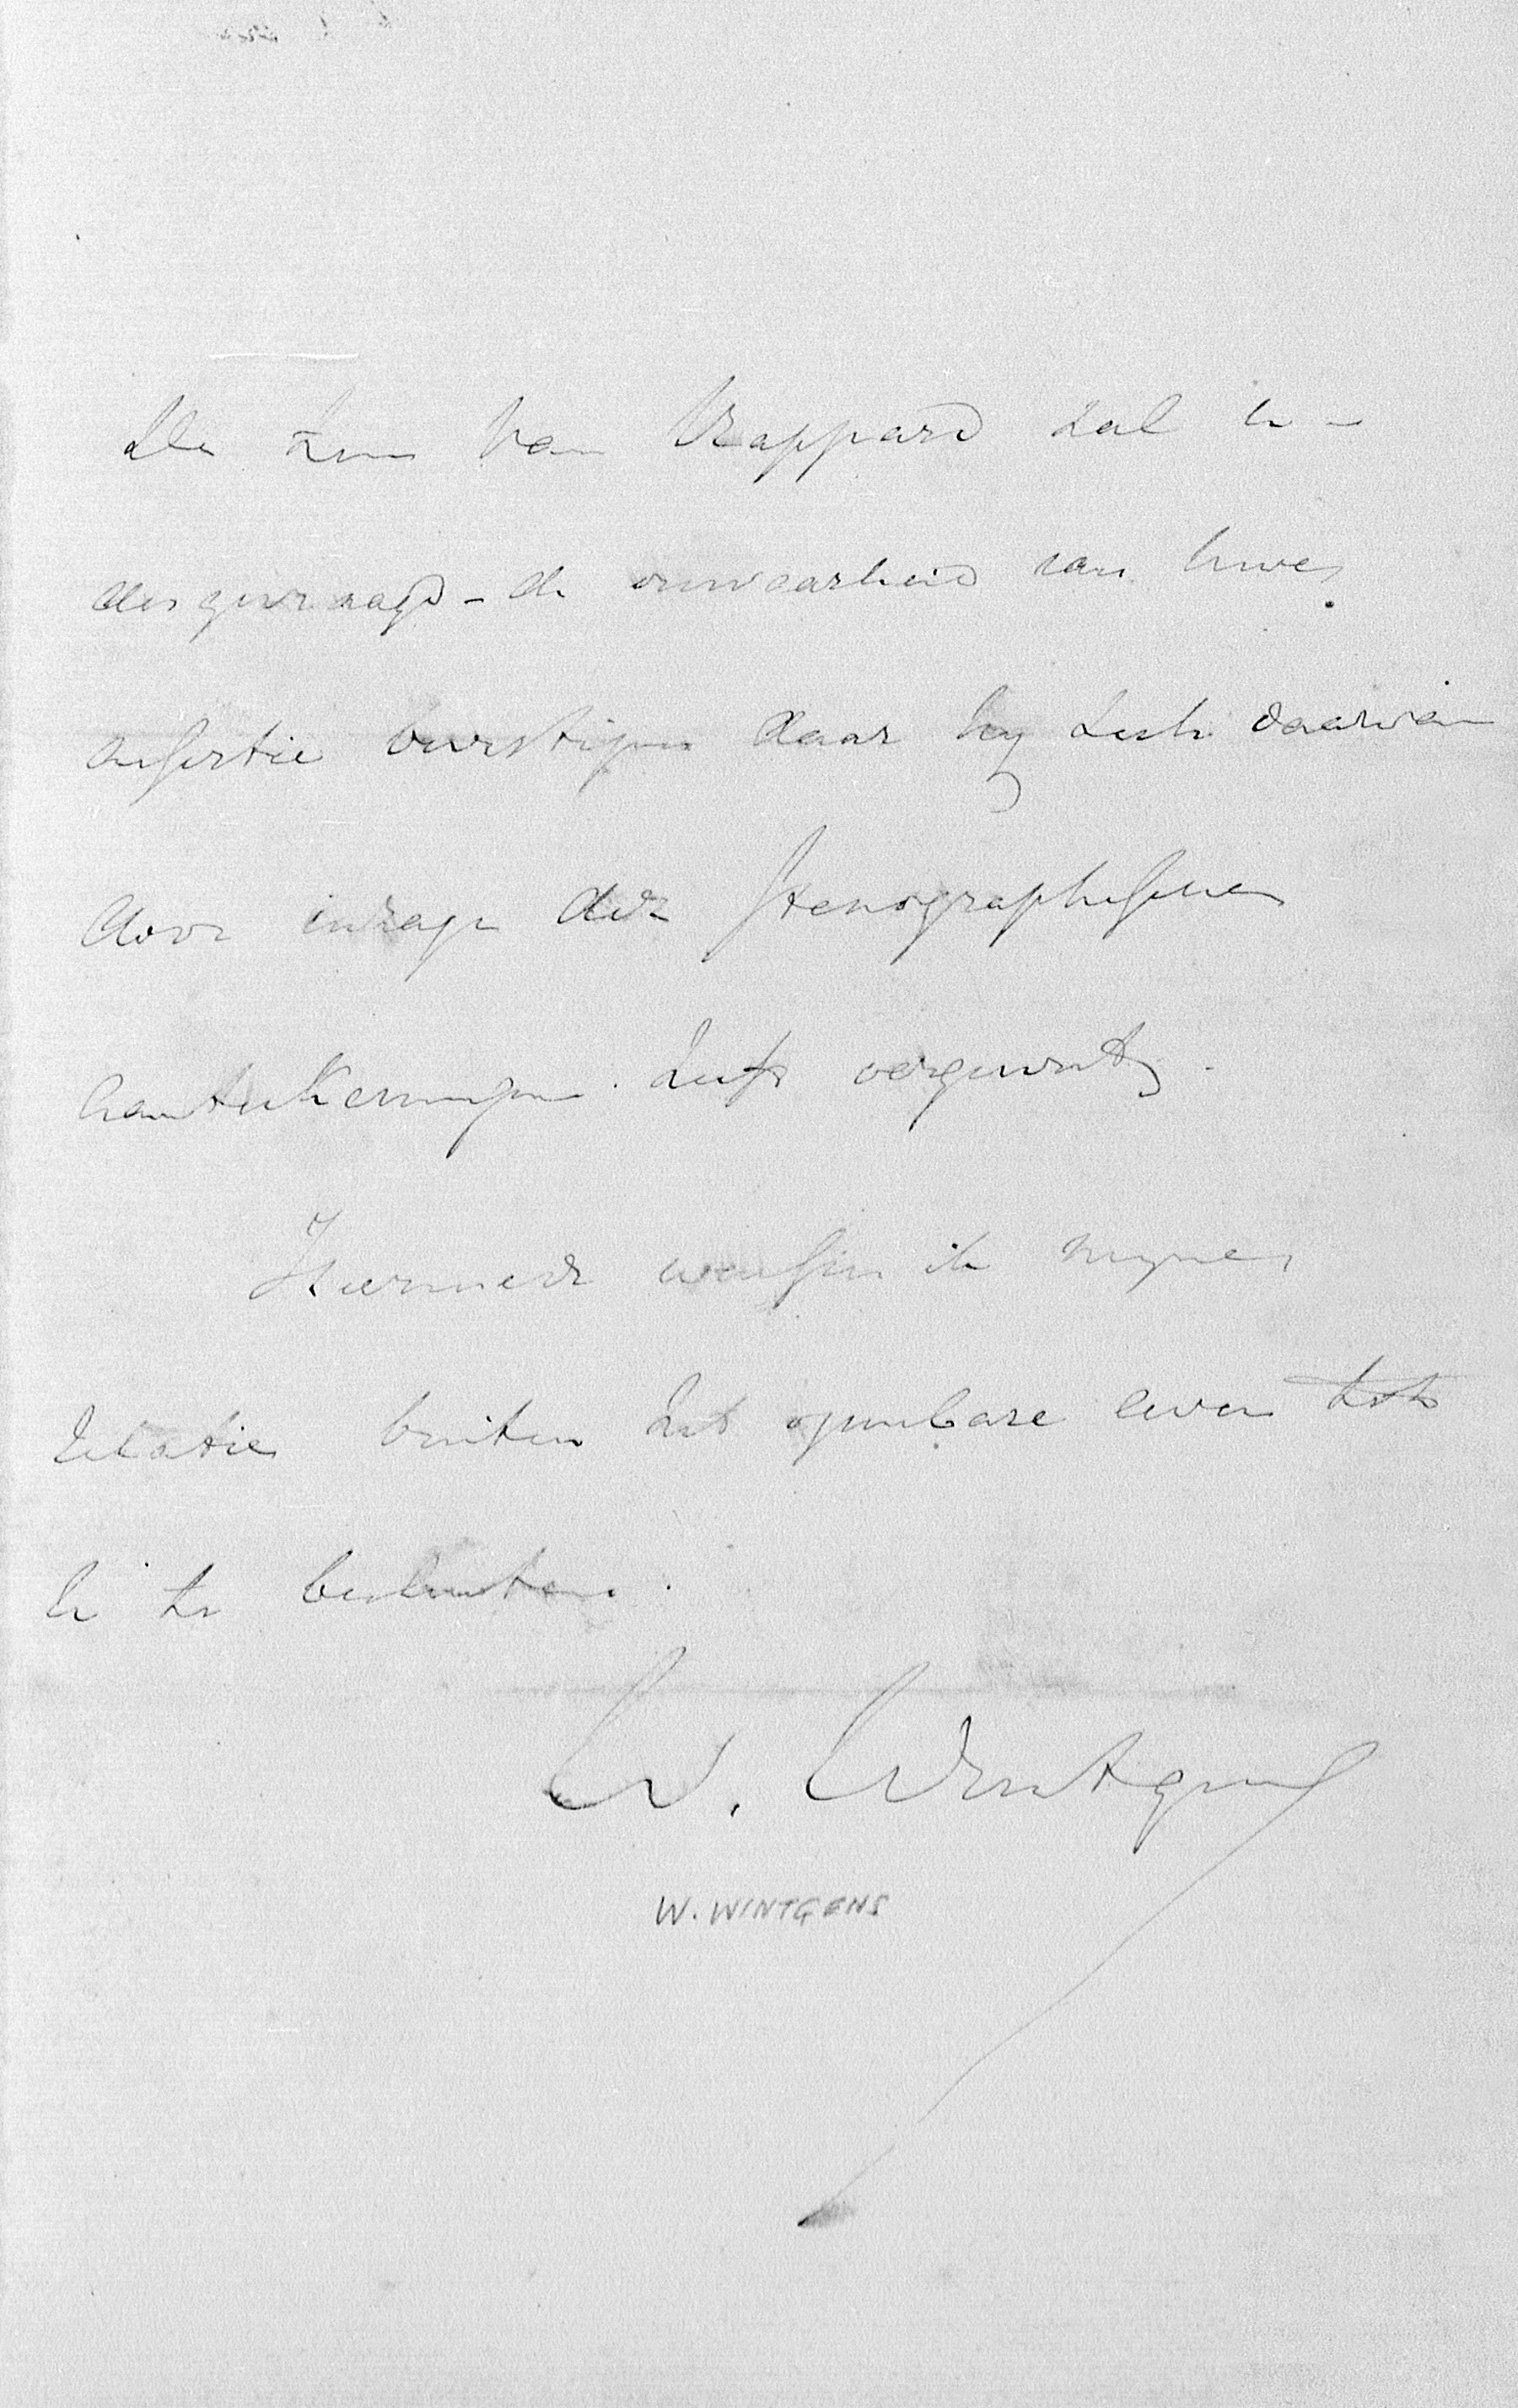 De Heer Van Rappard zal U -
desgevraagd - de onwaarheid van Uwe
assertie bevestigen daar hij zich daarvan
door inzage der Stenographische
aanteekeningen heeft vergewist.
Hiermede wensch ik mijne
relatie buiten het openbare leven tot
U te besluiten.
W. Wintgens
W. WINTGENS